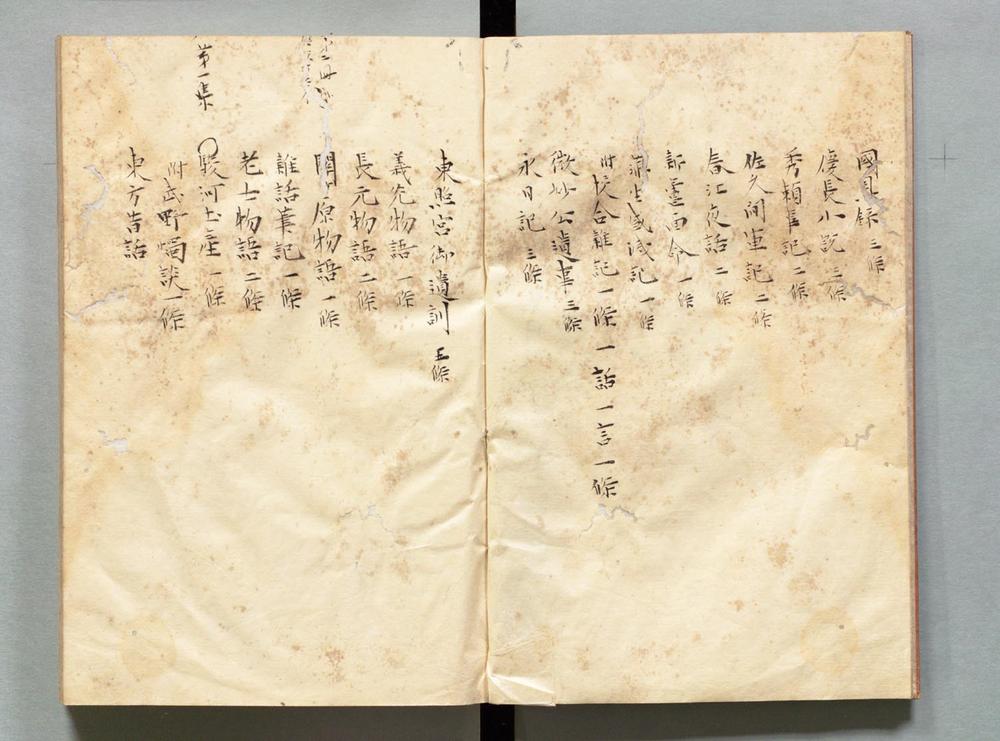 國見録 三條
慶長小説 三條
秀頼事記 二條
佐久間軍記 二條
春江夜話 二條
訴靈面命 一條
蒲生盛減記 一條
附 校合雜記 一條 一話一言 一條
微妙公遺事 三條
永日記 三條
東照宮御遺訓 五條
義光物語 一條
長元物語 二條
關原物語 一條
雜話筆記 一條
老士物語 二條
第一集
駿河土産 一條
附 武野燭談 一條
東方昔話